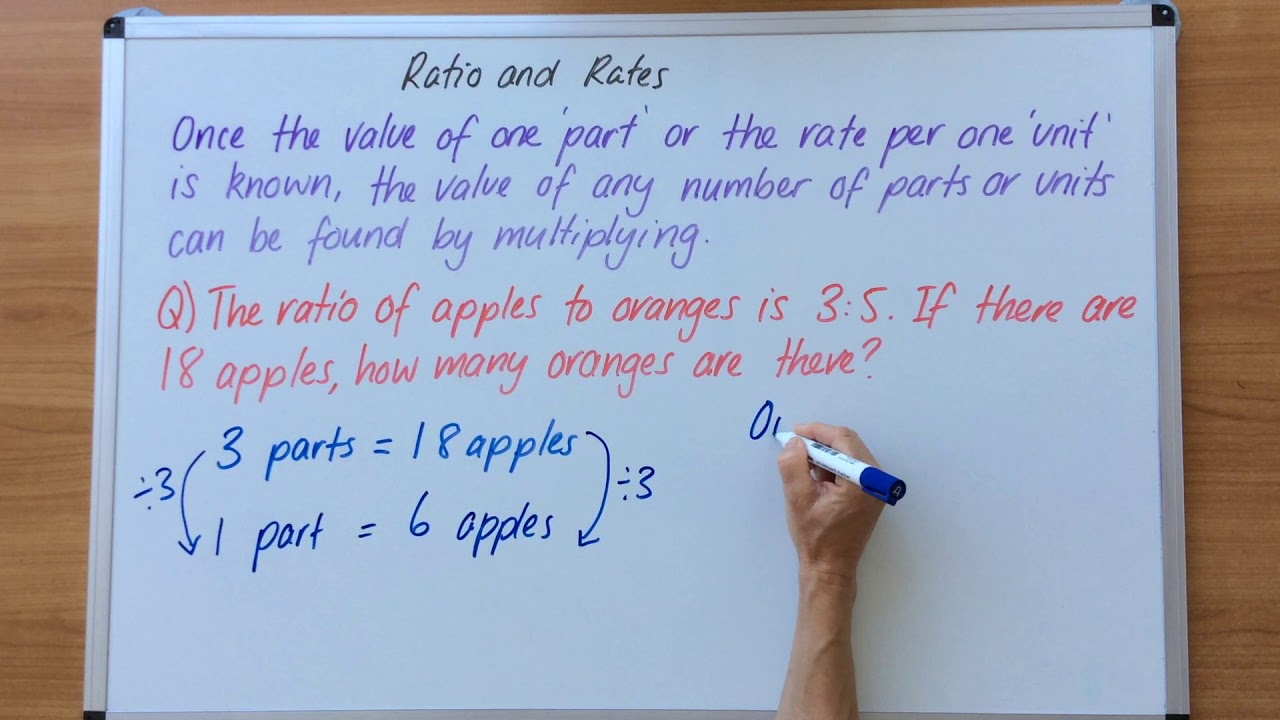 Ratio and Rates
Once the value of one 'part' or the rate per one 'unit'
is known, the value of any number of parts or units
can be found by multiplying.
Q) The ratio of apples to oranges is 3:5. If there are
18 apples, how many oranges are there?
3 parts = 18 apples
÷3 ÷3
1 part = 6 apples